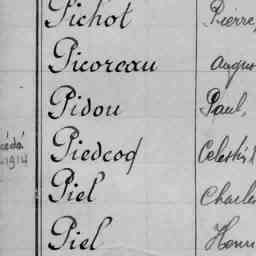 Pichot Pierre,
Picoreau Augus
Pidou Paul,
cédé Piedcoq Celestin
-1914
Piel Charles
Piel Henri